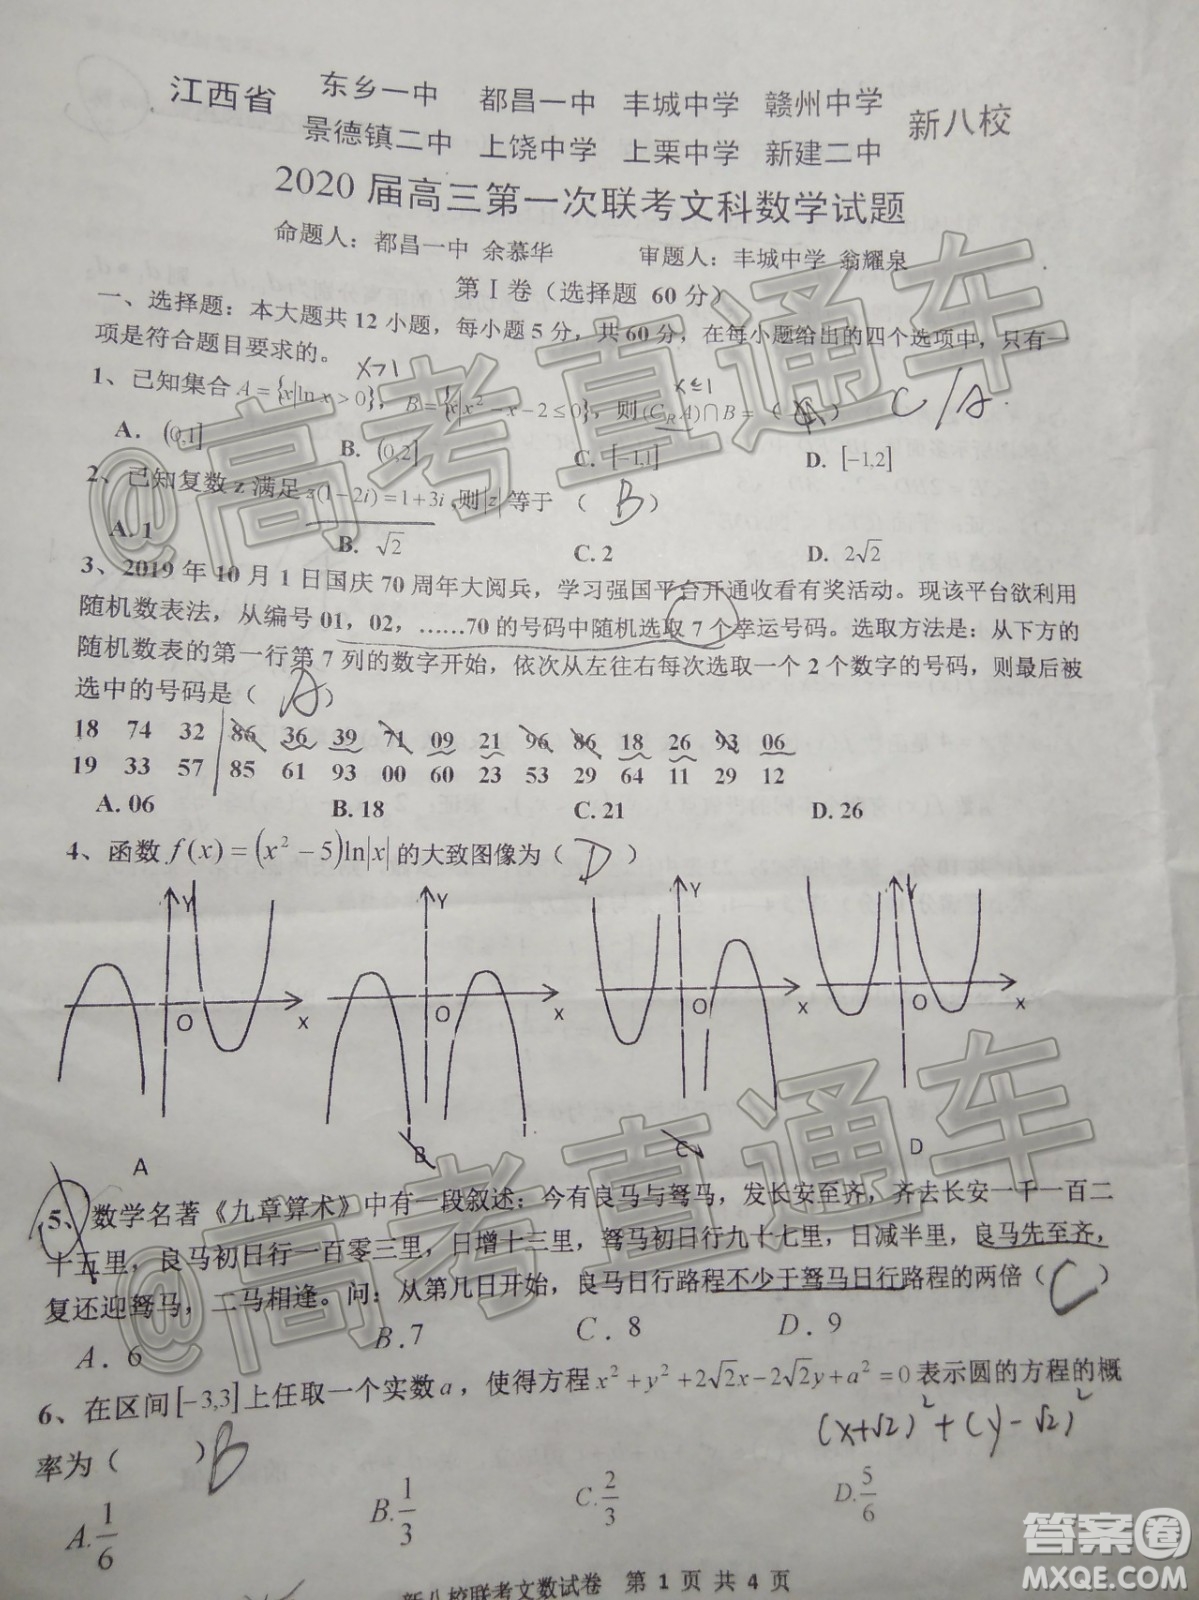 江西省 东乡一中 都昌一中 丰城中学 赣州中学 新八校
景德镇二中 上饶中学 上栗中学 新建二中
2020届高三第一次联考文科数学试题
命题人：都昌一中 余慕华 审题人：丰城中学 翁耀泉
第Ⅰ卷（选择题 60分）
一、选择题：本大题共12小题，每小题5分，共60分，在每小题给出的四个选项中，只有一
项是符合题目要求的。
x>1
x≤1
1、已知集合A={x|ln x>0}，B={x|x²-x-2≤0}，则(C_R A)∩B=（A） C/A.
A. (0,1] B. (0,2] C. [-1,1] D. [-1,2]
2、已知复数z满足z(1-2i)=1+3i,则|z|等于（B）
A. 1 B. √2 C. 2 D. 2√2
3、2019年10月1日国庆70周年大阅兵，学习强国平台开通收看有奖活动。现该平台欲利用
随机数表法，从编号01，02，……70的号码中随机选取7个幸运号码。选取方法是：从下方的
随机数表的第一行第7列的数字开始，依次从左往右每次选取一个2个数字的号码，则最后被
选中的号码是（A）
18 74 32 86 36 39 71 09 21 96 86 18 26 93 06
19 33 57 85 61 93 00 60 23 53 29 64 11 29 12
A. 06 B. 18 C. 21 D. 26
4、函数f(x)=(x²-5)ln|x|的大致图像为（D）
Y Y Y Y
O x O x O x O x
A B C D
5、数学名著《九章算术》中有一段叙述：今有良马与驽马，发长安至齐，齐去长安一千一百二
十五里，良马初日行一百零三里，日增十三里，驽马初日行九十七里，日减半里，良马先至齐，
复还迎驽马，二马相逢。问：从第几日开始，良马日行路程不少于驽马日行路程的两倍（C）
A. 6 B. 7 C. 8 D. 9
6、在区间[-3,3]上任取一个实数a，使得方程x²+y²+2√2x-2√2y+a²=0表示圆的方程的概
(x+√2)²+(y-√2)²
率为（ ）B
A. 1/6 B. 1/3 C. 2/3 D. 5/6
新八校联考文数试卷 第1页共4页
@高考直通车
@高考直通车
答案圈
MXQE.COM